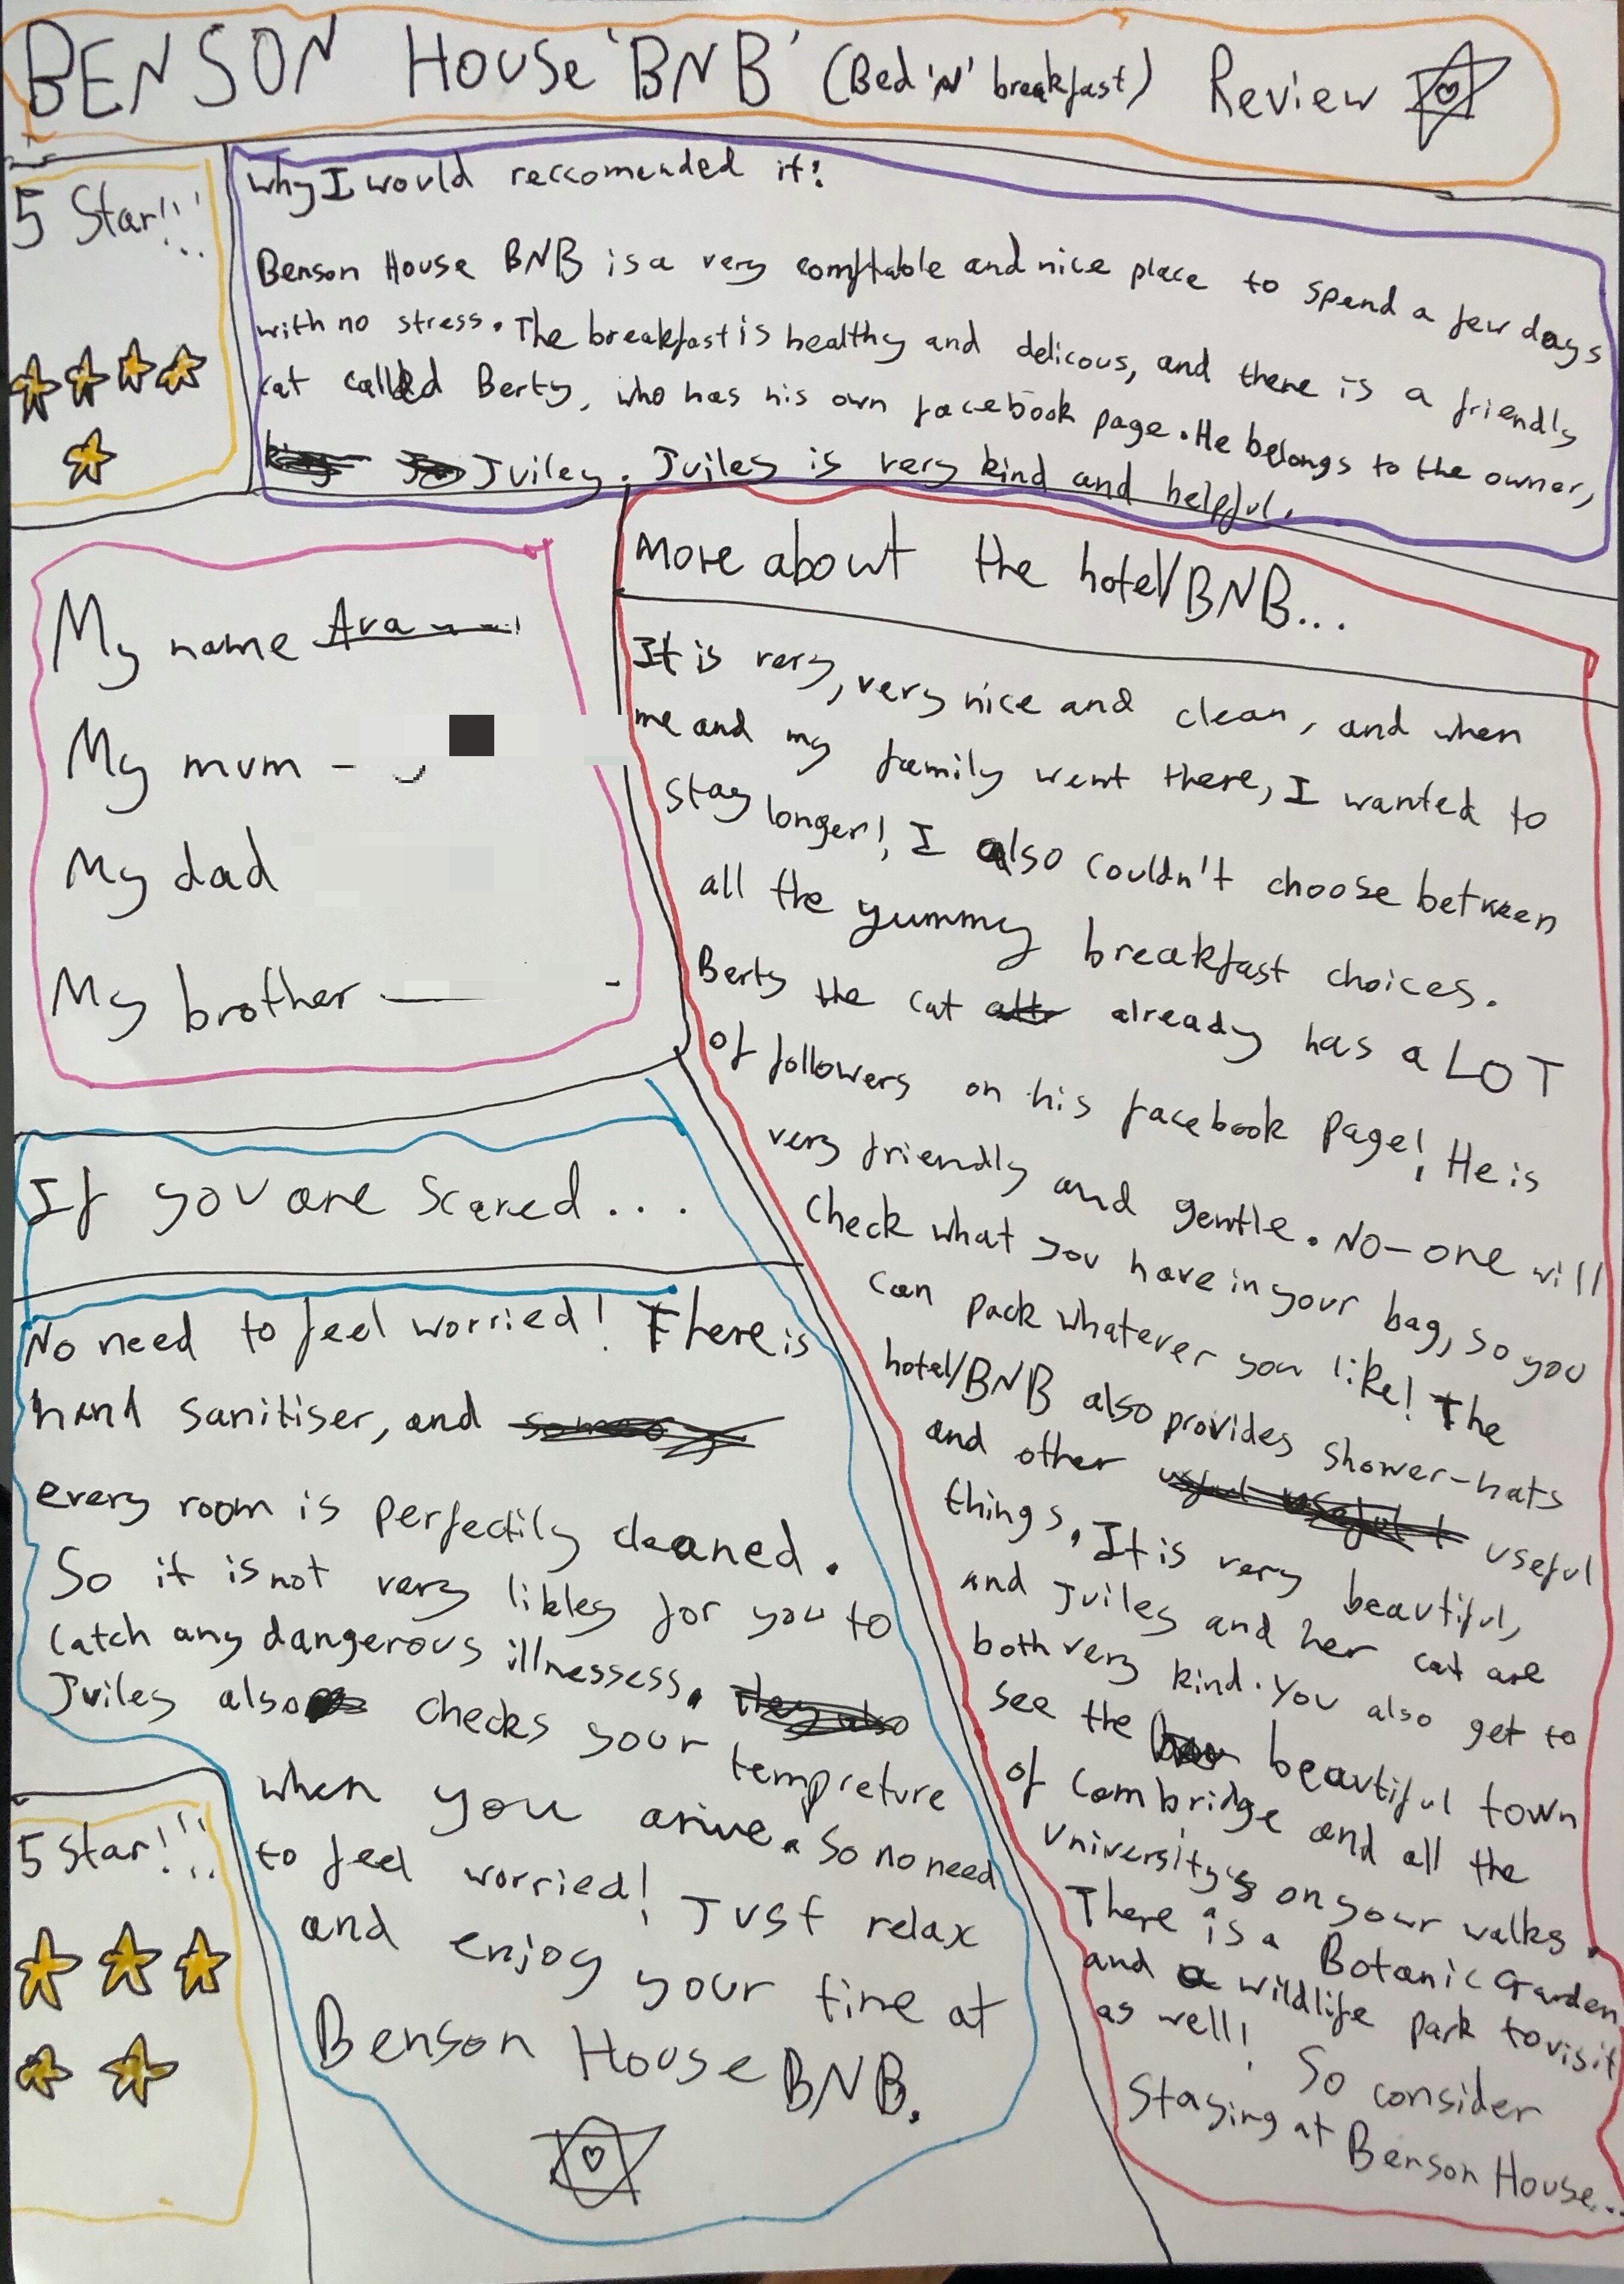 BENSON House 'BNB' (Bed 'N' breakfast) Review
5 Star!!!
Why I would reccomended it:
Benson House BNB is a very comftable and nice place to spend a few days
with no stress. The breakfast is healthy and delicous, and there is a friendly
cat called Berty, who has his own facebook page. He belongs to the owner,
Juiley. Juiley is very kind and helpful.
My name Ava
My mum -
My dad
My brother
More about the hotel/BNB...
It is very, very nice and clean, and when
me and my family went there, I wanted to
stay longer! I also couldn't choose between
all the yummy breakfast choices.
Berty the cat already has a LOT
of followers on his facebook page! He is
very friendly and gentle. No-one will
check what you have in your bag, so you
can pack whatever you like! The
hotel/BNB also provides shower-hats
and other useful
things. It is very beautiful,
and Juiley and her cat are
both very kind. You also get to
see the beautiful town
of Cambridge and all the
University's on your walks.
There is a Botanic Garden
and a wildlife park to visit
as well! So consider
Staying at Benson House...
If you are scared...
No need to feel worried! There is
hand sanitiser, and
every room is perfectily cleaned.
So it is not very likley for you to
catch any dangerous illnessess.
Juiley also checks your tempreture
when you arive. So no need
to feel worried! Just relax
and enjoy your time at
Benson House BNB.
5 Star!!!